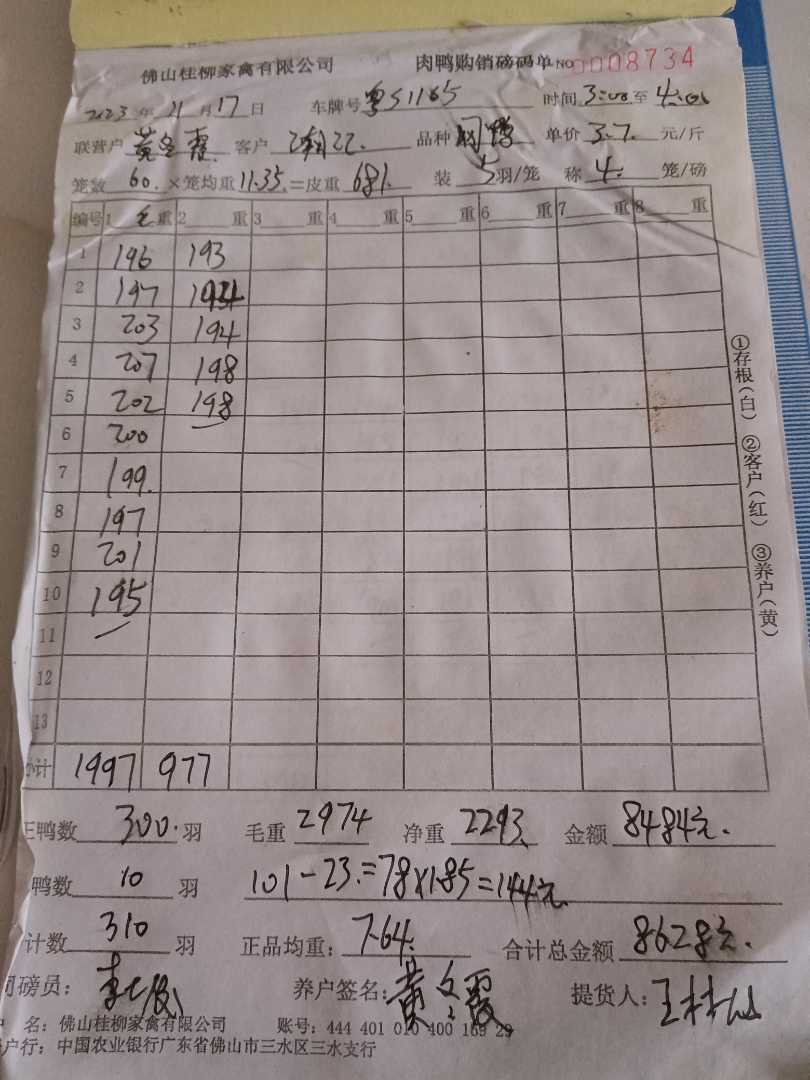 佛山桂柳家禽有限公司 肉鸭购销磅码单 NO 0008734
2023年11月17日 车牌号 粤S1165 时间 3:00至4:00
联营户 黄 霞 客户 品种 单价 3.7. 元/斤
笼数 60. ×笼均重 11.35. =皮重 681. 装 5羽/笼 称 4. 笼/磅
编号 1 毛重 2 重 3 重 4 重 5 重 6 重 7 重 8 重
1 196 193
2 197 194
3 203 194
4 207 198
5 202 198
6 200
7 199.
8 197
9 201
10 195
11
12
13
小计 1997 977
正鸭数 300. 羽 毛重 2974 净重 2293. 金额 8484元.
鸭数 10 羽 101-23.=78×1.85=144元.
计数 310 羽 正品均重: 7.64. 合计总金额 8628元.
司磅员: 李 养户签名: 黄 霞 提货人: 王林仙
名: 佛山桂柳家禽有限公司 账号: 444 401 010 400 169 29
户行: 中国农业银行广东省佛山市三水区三水支行
①存根(白) ②客户(红) ③养户(黄)